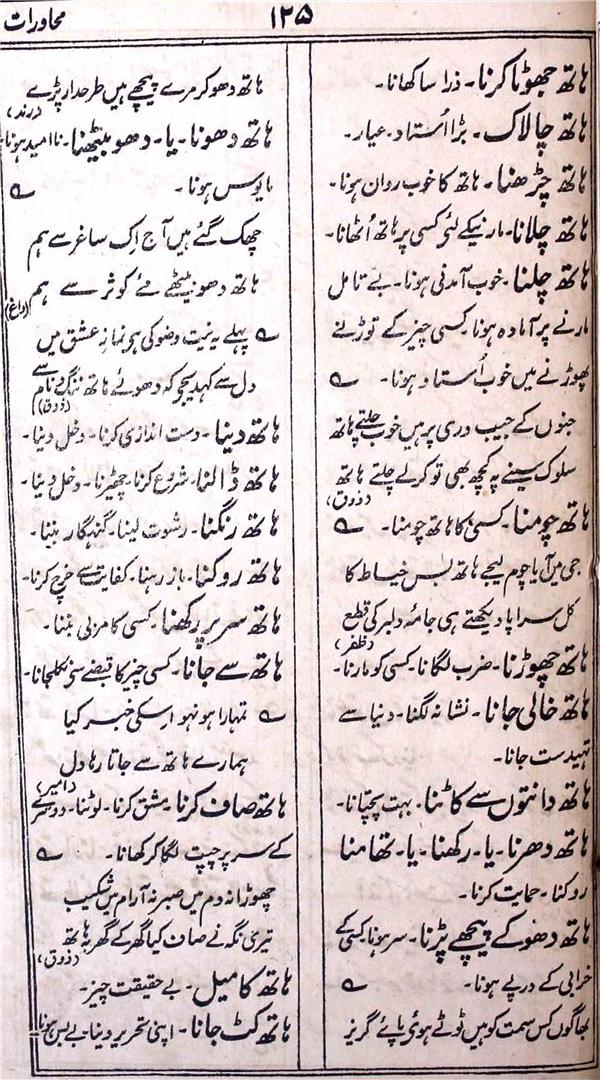 محاورات
۱۲۵
ہاتھ جھوٹا کرنا۔ ذرا سا کھانا۔
ہاتھ چالاک۔ بڑا اُستاد۔ عیار۔
ہاتھ چڑھنا۔ ہاتھ کا خوب رواں ہونا۔
ہاتھ چلانا۔ مارنیکے لئے کسی پر ہاتھ اُٹھانا۔
ہاتھ چلنا۔ خوب آمدنی ہونا۔ بے تامل
مارنے پر آمادہ ہونا۔ کسی چیز کے توڑنے
پھوڑنے میں خوب اُستاد ہونا۔ ؎
جنوں کے جیب دری پر ہیں خوب چلتے ہاتھ
سلوک سینے پہ کچھ بھی تو کرلے چلتے ہاتھ
(ذوق)
ہاتھ چومنا۔ کسی کا ہاتھ چومنا۔ ؎
جی میں آیا چوم لیجے ہاتھ بس خیاط کا
کل سراپا دیکھتے ہی جامۂ دلبر کی قطع
(ظفر)
ہاتھ چھوڑنا۔ ضرب لگانا۔ کسی کو مارنا۔
ہاتھ خالی جانا۔ نشانہ نہ لگنا۔ دنیا سے
تہیدست جانا۔
ہاتھ دانتوں سے کاٹنا۔ بہت پچتانا۔
ہاتھ دھرنا۔ یا۔ رکھنا۔ یا۔ تھامنا
روکنا۔ حمایت کرنا۔
ہاتھ دھوکے پیچھے پڑنا۔ سر ہونا۔ کسی کے
خرابی کے درپے ہونا۔ ؎
بھاگوں کس سمت کو ہیں ٹوٹے ہوئی پائے گریز
ہاتھ دھوکر مرے پیچھے ہیں طرحدار پڑے
(رند)
ہاتھ دھونا۔ یا۔ دھو بیٹھنا۔ نا امید ہونا
مایوس ہونا۔ ؎
چھک گئے ہیں آج اِک ساغر سے ہم
ہاتھ دھو بیٹھے مئے کوثر سے ہم
(داغ)
؎ پہلے یہ نیت وضو کی ہی نماز عشق میں
دل سے کہدیجو کہ دھوئے ہاتھ ننگ و نام سے
(ذوق)
ہاتھ دینا۔ دست اندازی کرنا۔ دخل دینا۔
ہاتھ ڈالنا۔ شروع کرنا۔ چھیڑنا۔ دخل دینا۔
ہاتھ رنگنا۔ رشوت لینا۔ گنہگار بننا۔
ہاتھ روکنا۔ باز رہنا۔ کفایت سے خرچ کرنا۔
ہاتھ سر پر رکھنا۔ کسی کا مربی بننا۔
ہاتھ سے جانا۔ کسی چیز کا قبضے سے نکلجانا۔
؎ تمہارا ہو نہو اسکی خبر کیا
ہمارے ہاتھ سے جاتا رہا دل
(امیر)
ہاتھ صاف کرنا۔ مشق کرنا۔ لوٹنا۔ دوسرے
کے سر پر چپت لگا کر کھانا۔ ؎
چھوڑا نہ دم میں صبر نہ آرام میں شکیب
تیری نگہ نے صاف کیا گھر کے گھر پہ ہاتھ
(ذوق)
ہاتھ کا میل۔ بے حقیقت چیز۔
ہاتھ کٹ جانا۔ اپنی تحریر دینا۔ بے بس ہونا